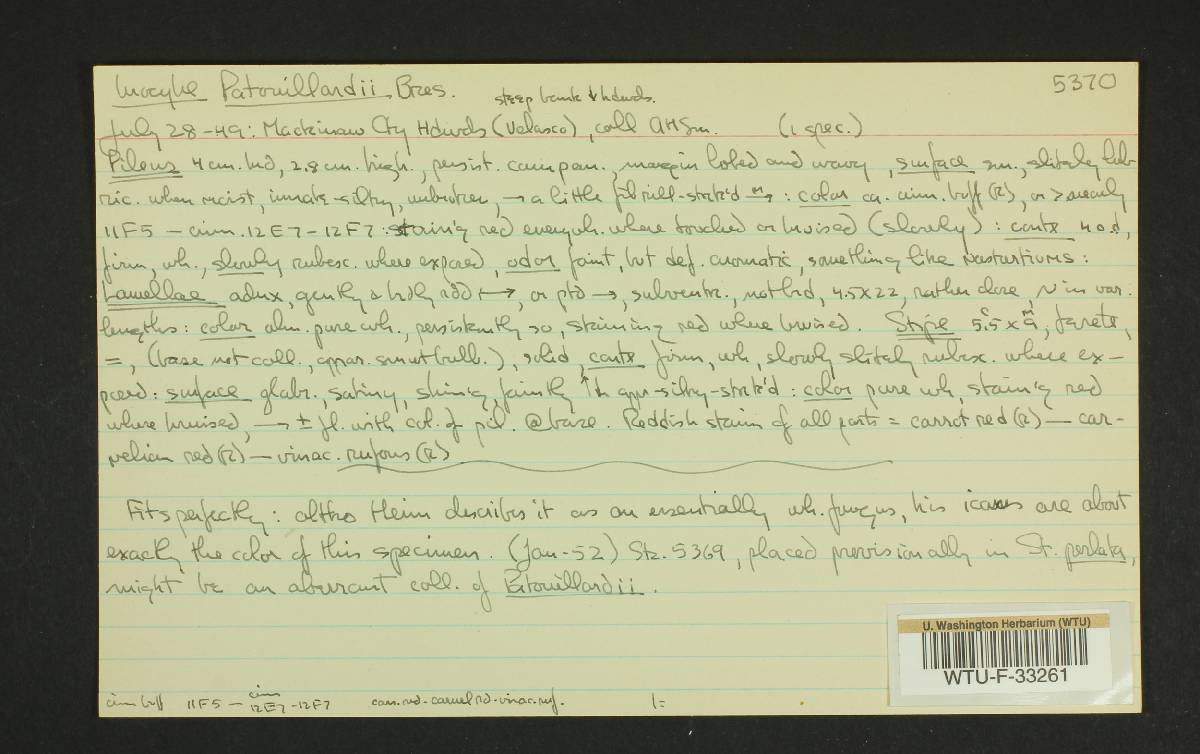 Inocybe Patouillardii Bres. 5370
steep bank & hdwds.
July 28-49: Mackinaw Cty Hdwds (Velasco), coll AHSm. (1 spec.)
Pileus 4 cm. brd, 2.8 cm. high, persist. campan., margin lobed and wavy, surface sm., slitely lub-
ric. when moist, innate-silky, unbroken, → a little fibrill-streak'd M→: color ca. cinn. buff (R), or > nearly
11F5 – cinn. 12E7-12F7: stain'g red everywh. where touched or bruised (slowly): contx 4 o.d,
firm, wh., slowly rubesc. where exposed, odor faint, but def. aromatic, something like Nasturtiums:
Lamellae adnx, gently & brdly rdd ←→, or ptd →, subventr., not brd, 4.5x22, rather close, N in var.
lengths: color alm. pure wh., persistently so, staining red where bruised. Stipe 5.5 c x 9 m, terete,
=, (base not coll., appar. sm not bulb.), solid, contx firm, wh, slowly slitely rubesc. where ex-
posed: surface glabr. satiny, shin'g, faintly appr-silky-streak'd: color pure wh, stain'g red
where bruised, → ± fl. with col. of pil. @ base. Reddish stain of all parts = carrot red (R) – car-
nelian red (R) – vinac. rufous (R)
Fits perfectly: altho Heim describes it as an essentially wh. fungus, his icones are about
exactly the color of this specimen. (Jan-52) Stz. 5369, placed provisionally in St. perlata,
might be an aberrant coll. of Patouillardii.
cinn buff 11F5 – cinn 12E7-12F7 car. red - carnel rd - vinac. ruf. 1=
U. Washington Herbarium (WTU)
WTU-F-33261